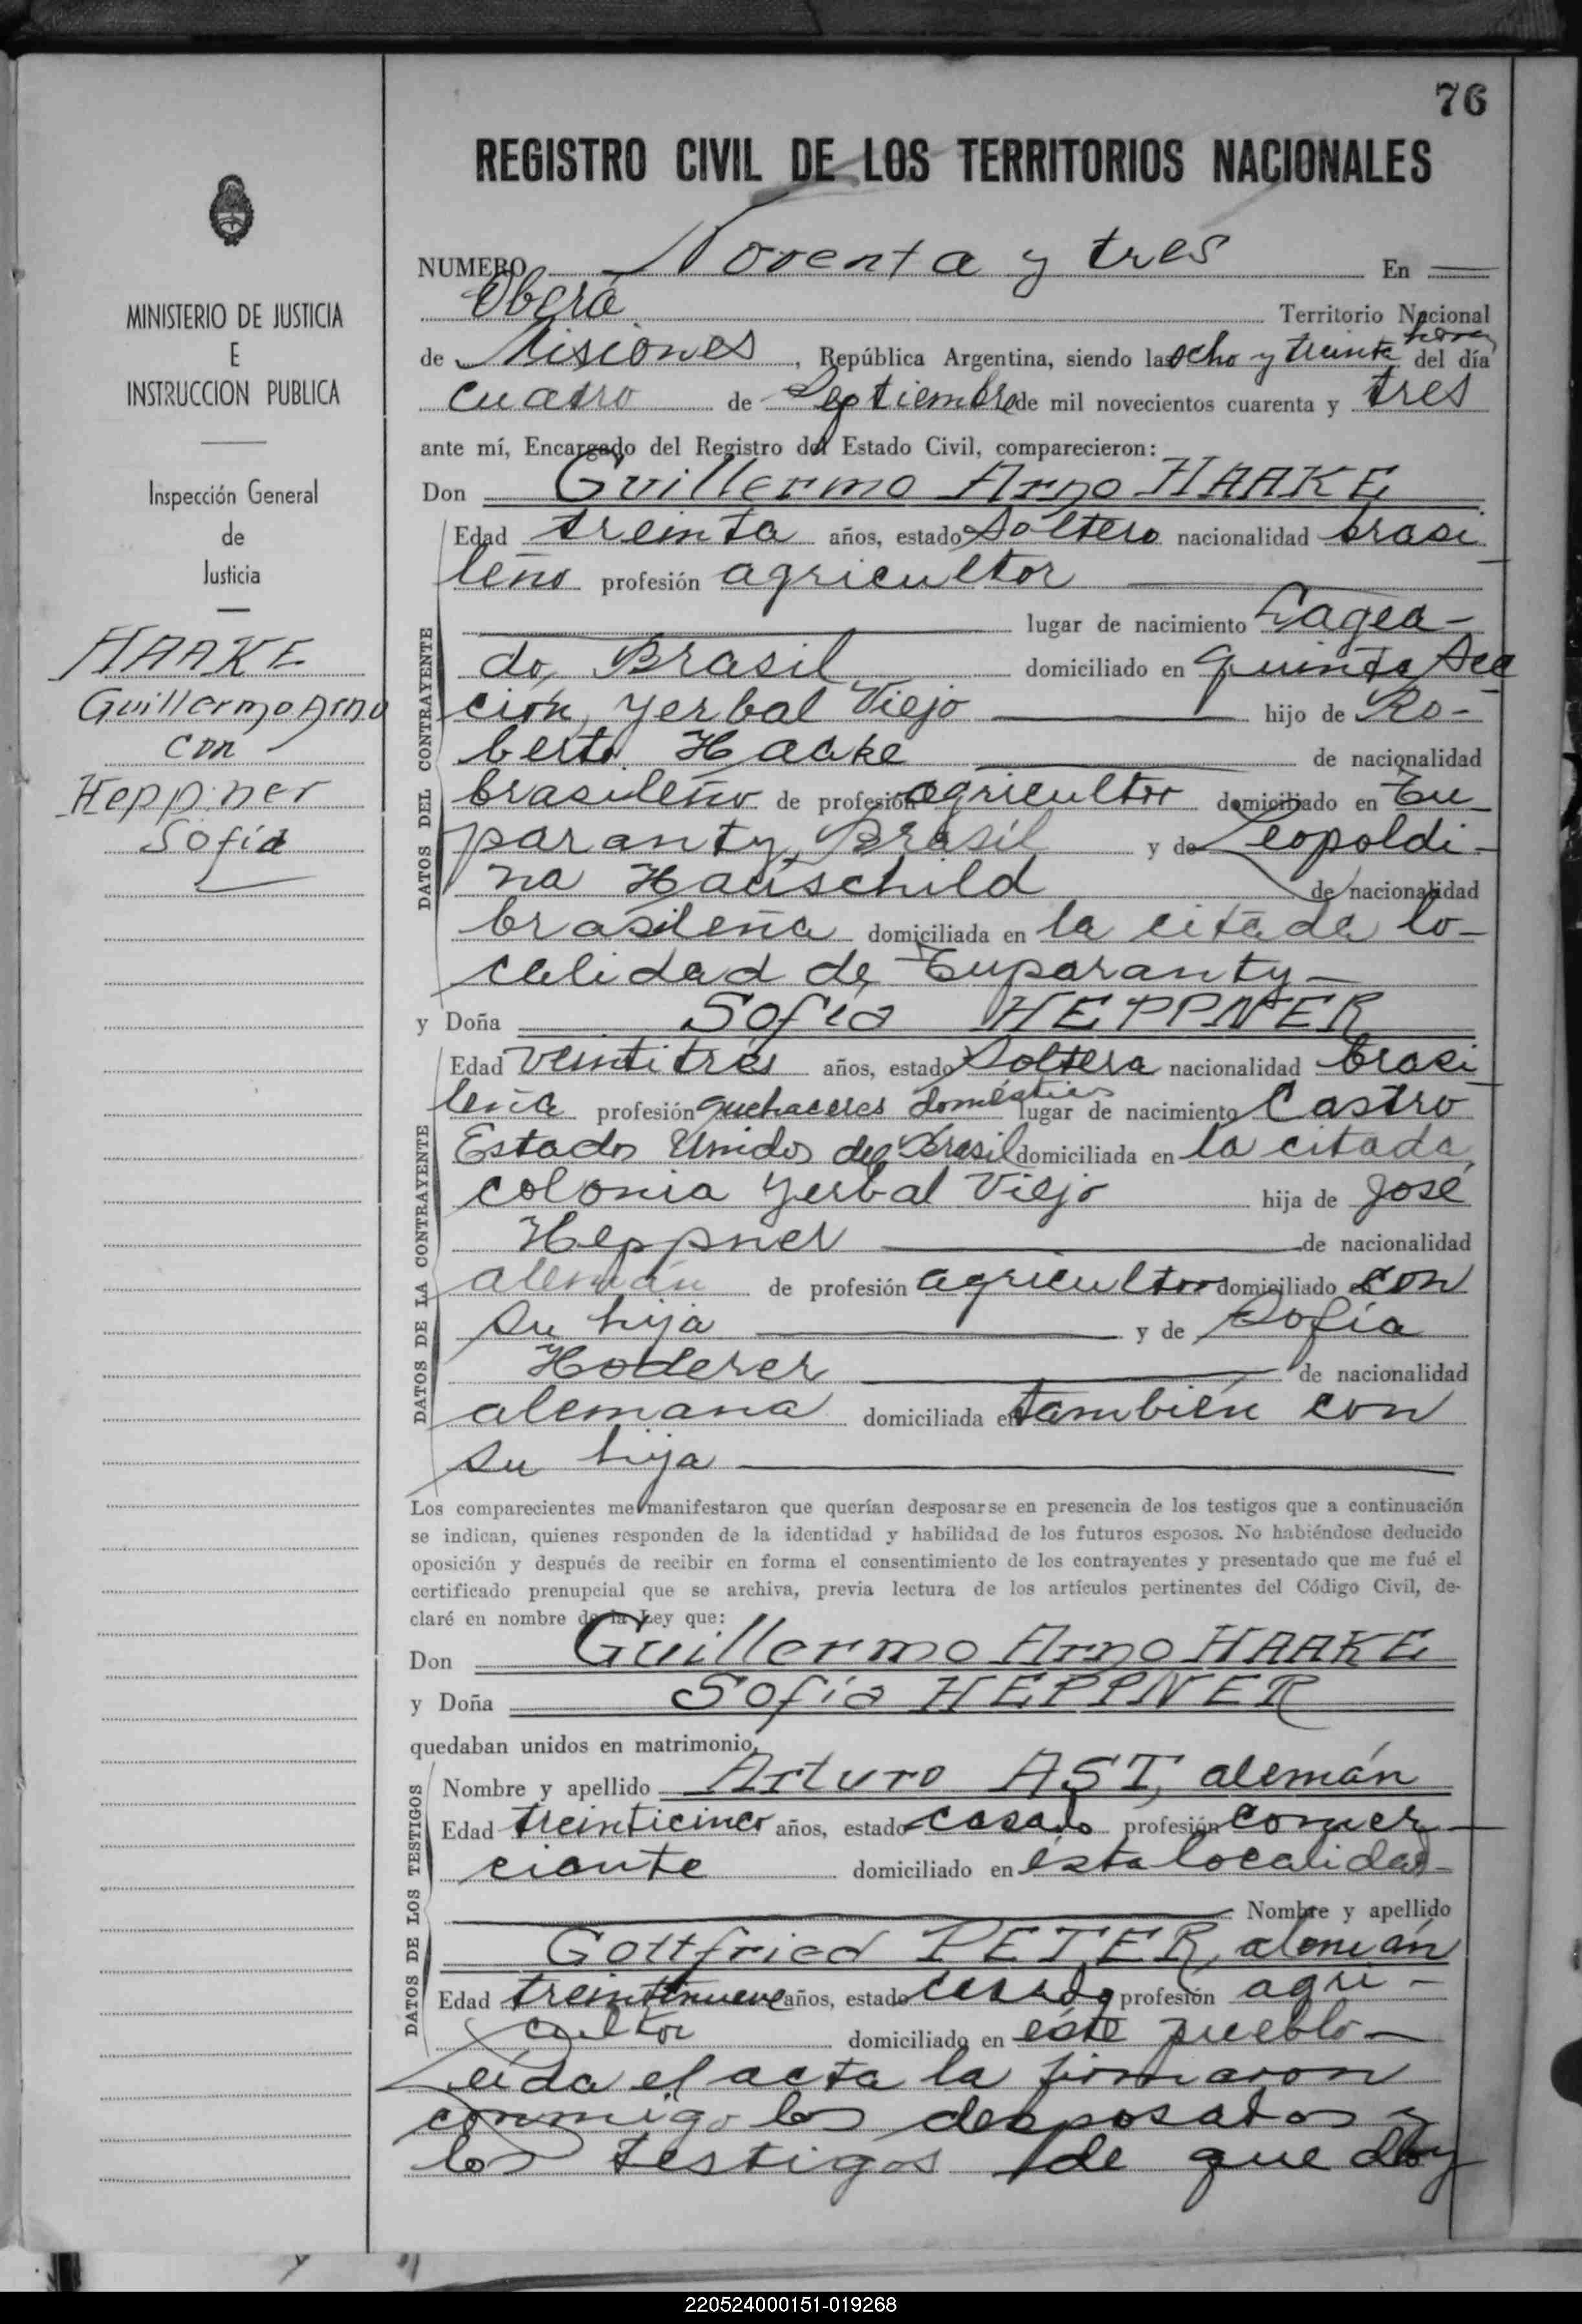 76
REGISTRO CIVIL DE LOS TERRITORIOS NACIONALES
MINISTERIO DE JUSTICIA
E
INSTRUCCION PUBLICA
Inspección General
de
Justicia
HAAKE
Guillermo Arno
con
Heppner
Sofía
NUMERO Noventa y tres En
Oberá Territorio Nacional
de Misiones, República Argentina, siendo las ocho y treinta horas del día
cuatro de Septiembre de mil novecientos cuarenta y tres
ante mí, Encargado del Registro del Estado Civil, comparecieron:
Don Guillermo Arno HAAKE
DATOS DEL CONTRAYENTE
Edad treinta años, estado soltero nacionalidad brasi
leño profesión agricultor
lugar de nacimiento Lagea-
do, Brasil domiciliado en quinta Sec
ción, Yerbal Viejo hijo de Ro-
berto Haake de nacionalidad
brasileño de profesión agricultor domiciliado en Tu
paranty, Brasil y de Leopoldi-
na Hauschild de nacionalidad
brasileña domiciliada en la citada lo-
calidad de Tuparanty-
y Doña Sofía HEPPNER
DATOS DE LA CONTRAYENTE
Edad veintitrés años, estado soltera nacionalidad brasi
leña profesión quehaceres domésticos lugar de nacimiento Castro
Estados Unidos del Brasil domiciliada en la citada
colonia Yerbal Viejo hija de José
Heppner de nacionalidad
alemán de profesión agricultor domiciliado en con
su hija y de Sofía
Hoderer de nacionalidad
alemana domiciliada en también con
su hija
Los comparecientes me manifestaron que querían desposarse en presencia de los testigos que a continuación
se indican, quienes responden de la identidad y habilidad de los futuros esposos. No habiéndose deducido
oposición y después de recibir en forma el consentimiento de los contrayentes y presentado que me fué el
certificado prenupcial que se archiva, previa lectura de los artículos pertinentes del Código Civil, de-
claré en nombre de la Ley que:
Don Guillermo Arno HAAKE
y Doña Sofía HEPPNER
quedaban unidos en matrimonio.
DATOS DE LOS TESTIGOS
Nombre y apellido Arturo AST, alemán
Edad treinticinco años, estado casado profesión comer
ciante domiciliado en ésta localidad-
Nombre y apellido
Gottfried PETER, alemán
Edad treintinueve años, estado casado profesión agri-
cultor domiciliado en éste pueblo-
Leída el acta la firmaron
conmigo los desposados y
los testigos de que doy
220524000151-019268